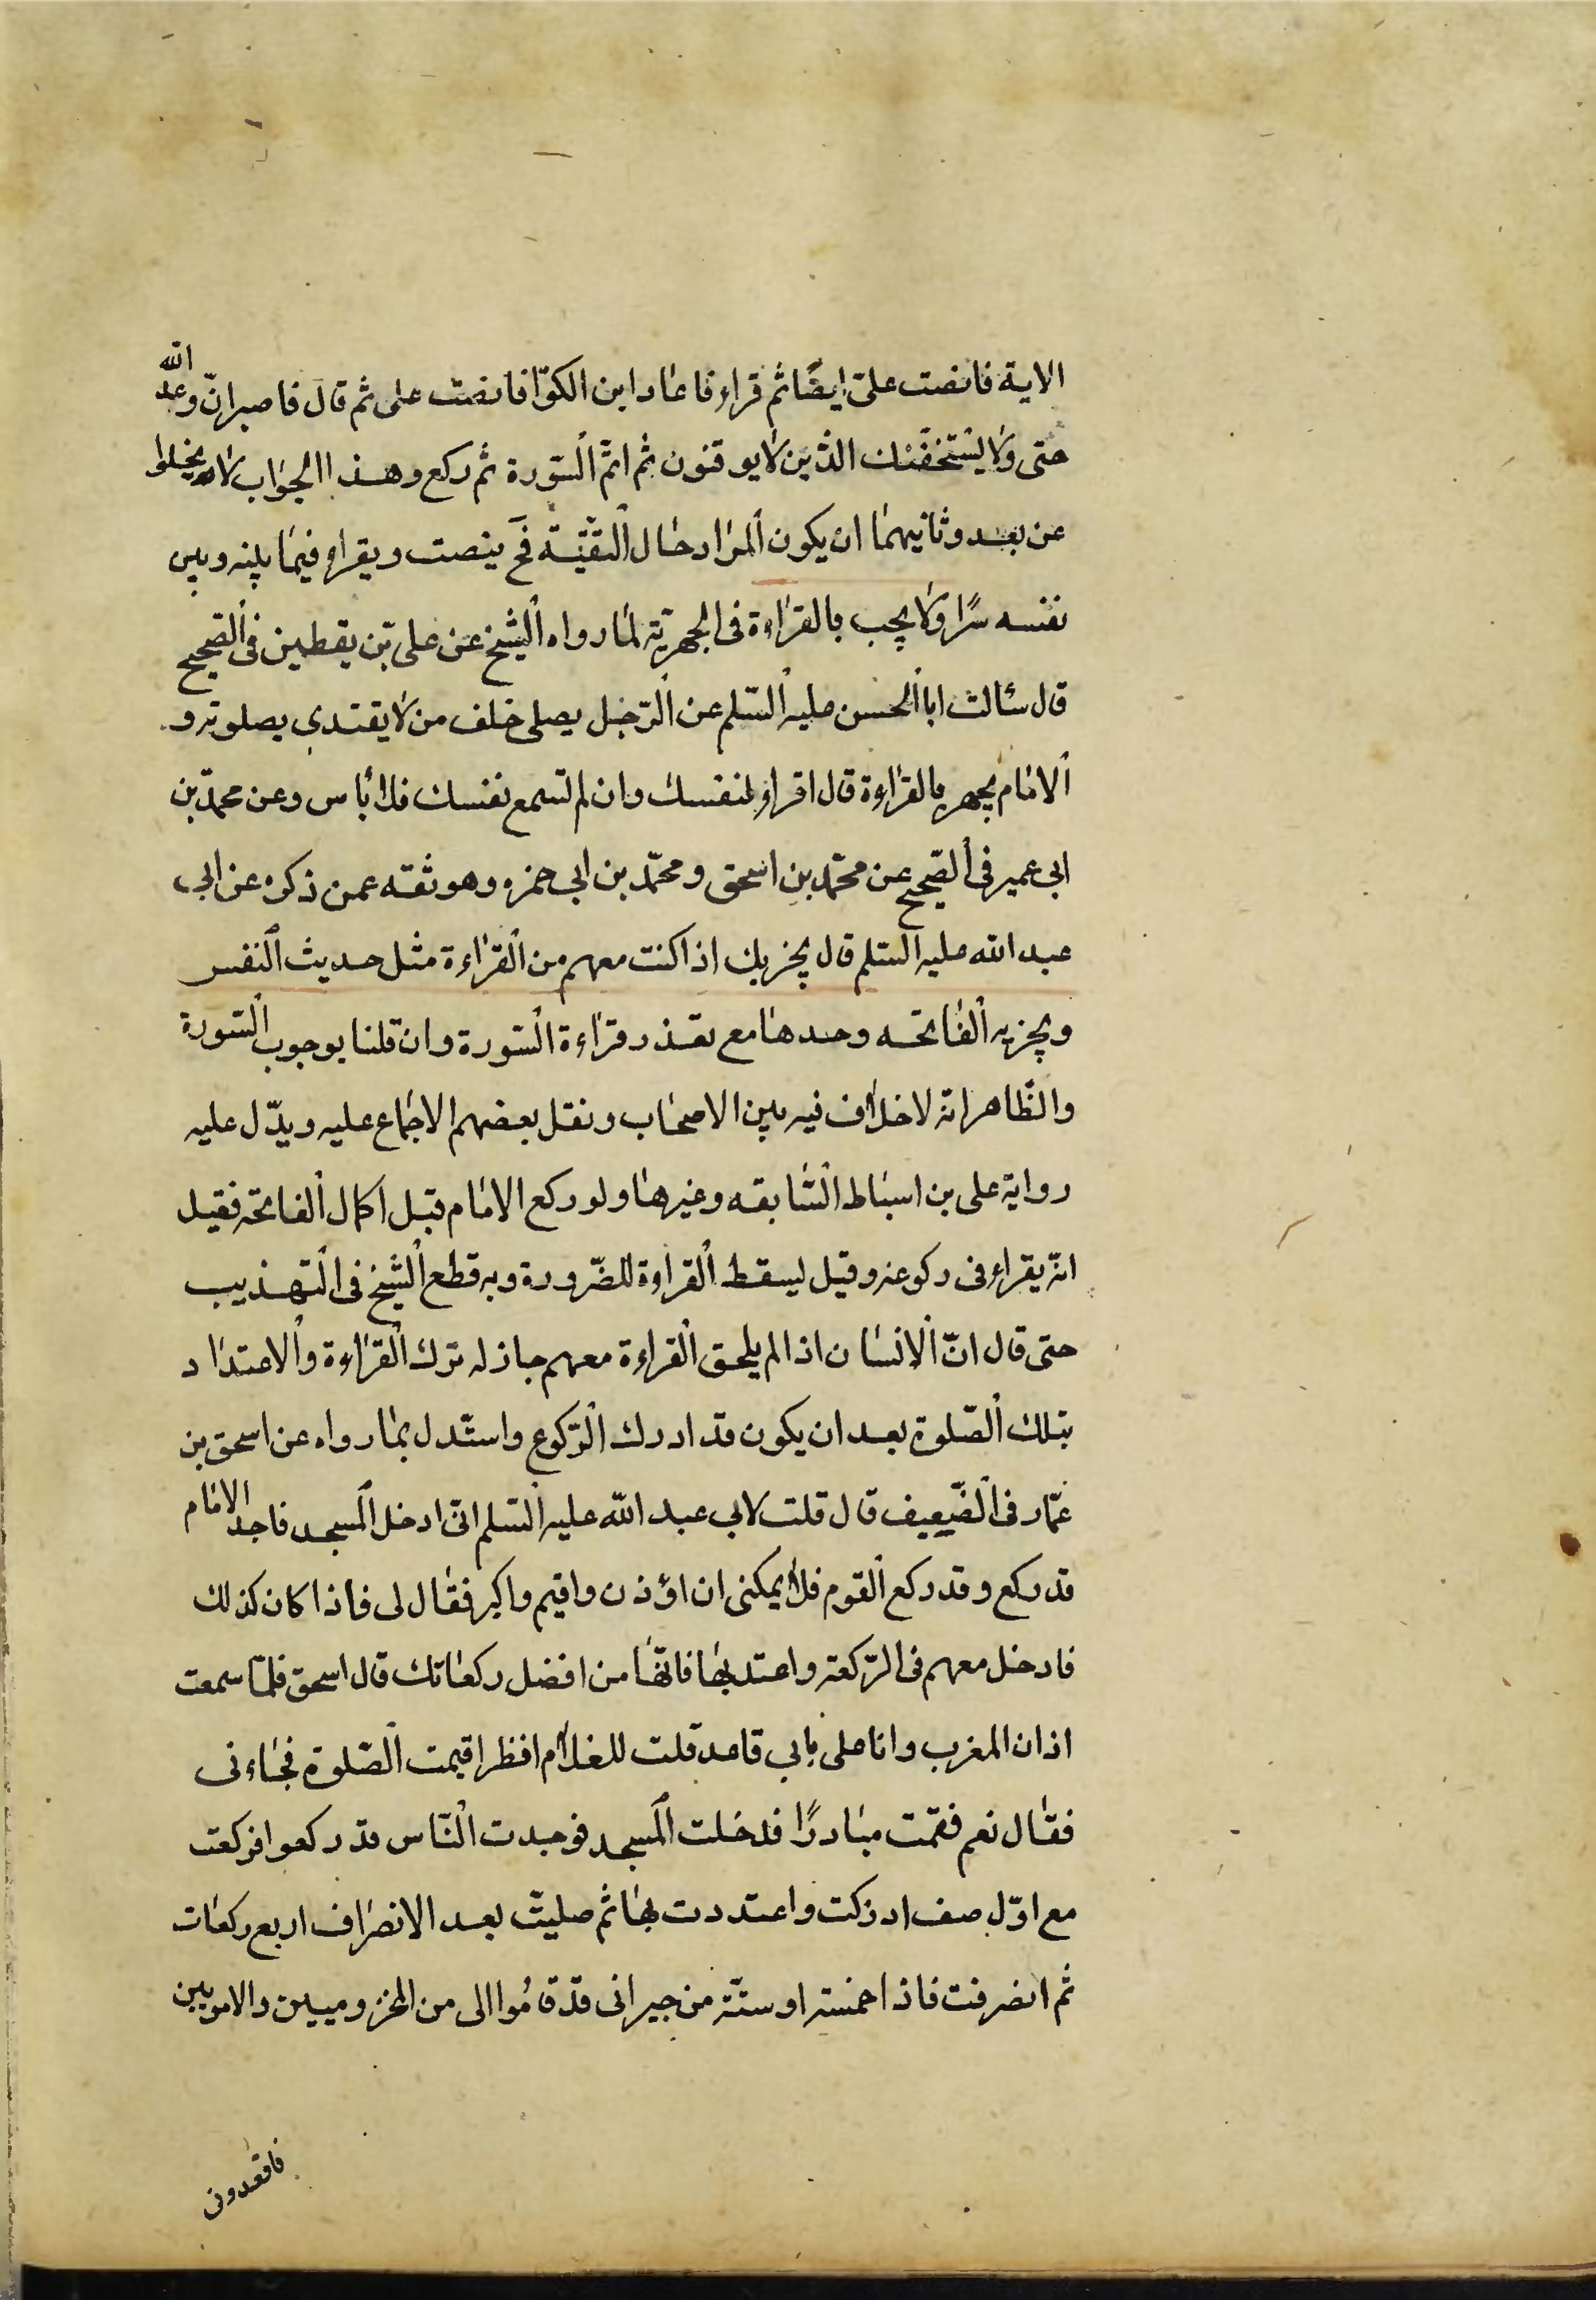 الاية فانصت علىّ ايضًا ثم قراء فاعاد ابن الكوّا فانصت على ثم قال فاصبر انّ وعد الله
حتى ولا يستخفّنك الذّين لا يوقنون ثم اتمّ السّورة ثم ركع وهذا الجواب لا يخلوا
عن بعد وثانيهما ان يكون المراد حال التقيّة فح ينصت ويقراء فيما بينه وبين
نفسه سرًا ولا يجب بالقراءة فى الجهريّة لما رواه الشيخ عن على بن يقطين فى الصّحيح
قال سئالت ابا الحسن عليه السّلم عن الرّجل يصلى خلف من لا يقتدي بصلوته و
الامام يجهر بالقراءة قال اقراء لنفسك وان لم تسمع نفسك فلا بأس وعن محمّد بن
ابى عمير فى الصّحيح عن محمّد بن اسحق ومحمّد بن ابى حمزه وهو ثقه عمن ذكره عن ابى
عبد الله عليه السّلم قال يجزيك اذا كنت معهم من القراءة مثل حديث النفس
ويجزيه الفاتحه وحدها مع تعذر قراءة السّورة وان قلنا بوجوب السّورة
والظّاهر انّه لا خلاف فيه بين الاصحاب ونقل بعضهم الاجماع عليه ويدّل عليه
رواية على بن اسباط السّابقه وغيرها ولو ركع الامام قبل اكمال الفاتحة فقيل
انّه يقراء فى ركوعه وقيل ليسقط القراءة للضّرورة وبه قطع الشيخ فى التهذيب
حتى قال انّ الانسان اذا لم يلحق القراءة معهم جاز له ترك القراءة والاعتداد
بتلك الصّلوة بعد ان يكون قد ادرك الرّكوع واستّدل بما رواه عن اسحق بن
عمّار فى الضّعيف قال قلت لابي عبد الله عليه السّلم انّى ادخل المسجد فاجد الامام
قد ركع وقد ركع القوم فلا يمكنى ان اؤذن واقيم واكبر فقال لى فاذا كان كذلك
فادخل معهم فى الرّكعة واعتد بها فانّها من افضل ركعاتك قال اسحق فلمّا سمعت
اذان المغرب وانا على بابي قاعد قلت للغلام انظر اقيمت الصّلوة فجاءنى
فقال نعم فقمت مبادرًا فدخلت المسجد فوجدت النّاس قد ركعوا فركعت
مع اوّل صف ادركت واعتددت بها ثم صليت بعد الانصراف اربع ركعات
ثم انصرفت فاذا خمسة او ستّة من جيرانى قد قاموا الى من المخزوميين والامويين
فاقعدونى